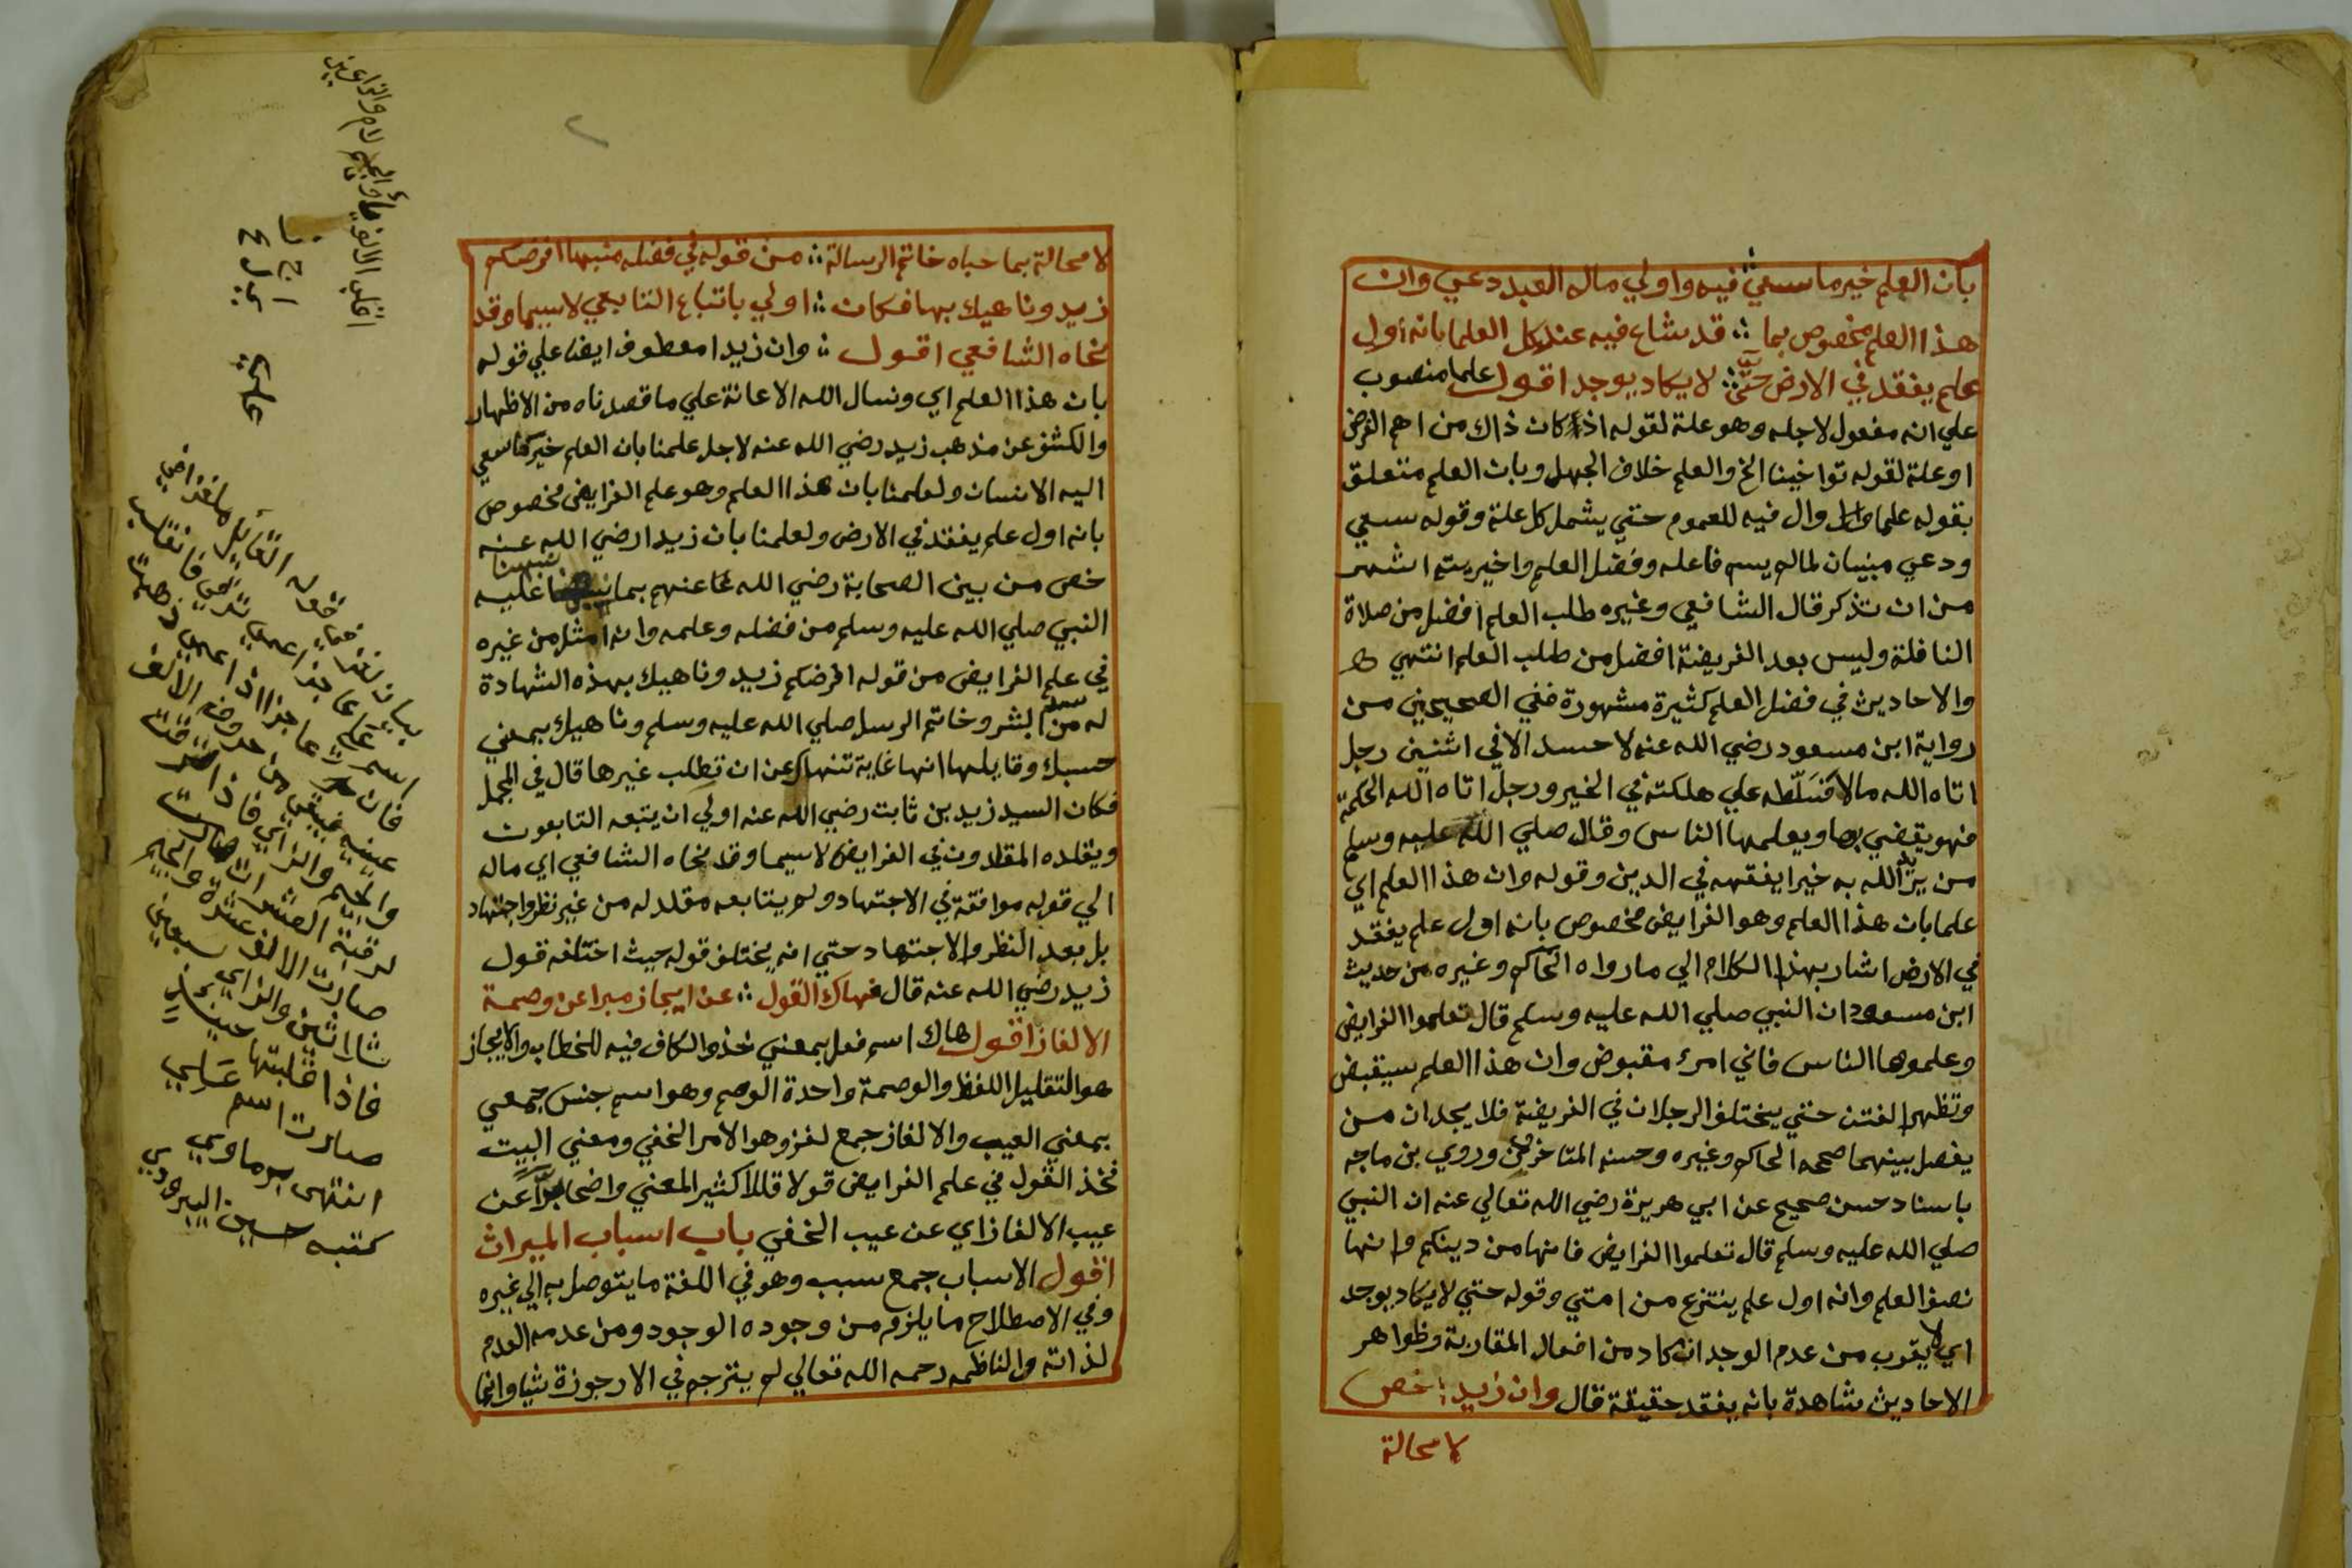 بان العلم خير ما سعي فيه واولي ماله العبد دعي وان
هذا العلم مخصوص بما ؞ قد شاع فيه عند كل العلما بانه أول
علم يفقد في الارض حتي ؞ لا يكاد يوجد اقول علما منصوب
علي انه مفعول لاجله وهو علة لقوله اذ كان ذاك من اهم الغرض
او علة لقوله تواخينا الخ والعلم خلاف الجهل وبان العلم متعلق
بقوله علما وال فيه للعموم حتي يشمل كل علة وقوله سعي
ودعي مبنيان لمالم يسم فاعله وفضل العلم واخيريته اشهر
من ان تذكر قال الشافعي وغيره طلب العلم افضل من صلاة
النافلة وليس بعد الفريضة افضل من طلب العلم انتهي
والاحاديث في فضل العلم كثيرة مشهورة ففي الصحيحين من
رواية ابن مسعود رضي الله عنه لا حسد الا في اثنين رجل
اتاه الله مالا فسَلّطه علي هلكته في الخير ورجل اتاه الله الحكمة
فهو يقضي بها ويعلمها الناس وقال صلي الله عليه وسلم
من يرد الله به خيرا يفقهه في الدين وقوله وان هذا العلم اي
علما بان هذا العلم وهو الفرايض مخصوص بانه اول علم يفقد
في الارض اشار بهذا الكلام الي ما رواه الحاكم وغيره من حديث
ابن مسعود ان النبي صلي الله عليه وسلم قال تعلموا الفرايض
وعلموها الناس فاني امرء مقبوض وان هذا العلم سيقبض
وتظهر الفتن حتي يختلف الرجلان في الفريضة فلا يجدان من
يفصل بينهما صححه الحاكم وغيره وحسنه المتاخرون وروي بن ماجه
باسناد حسن صحيح عن ابي هريرة رضي الله تعالي عنه ان النبي
صلي الله عليه وسلم قال تعلموا الفرايض فانها من دينكم وانها
نصف العلم وانه اول علم ينتزع من امتي وقوله حتي لا يكاد يوجد
اي لا يقرب من عدم الوجدان كاد من افعال المقاربة وظواهر
الاحاديث شاهدة بانه يفقد حقيقة قال وان زيدا خص
لا محالة
لا محالة بما حباه خاتم الرسالة ؞ من قوله في فضله منبها افرضكم
زيد وناهيك بها فكان ؞ اولي باتباع التابعي لاسيما وقد
نحاه الشافعي اقول ؞ وان زيدا معطوف ايضا علي قوله
بان هذا العلم اي ونسال الله الاعانة علي ما قصدناه من الاظهار
والكشف عن مذهب زيد رضي الله عنه لاجل علمنا بان العلم خير ما سعي
اليه الانسان ولعلمنا بان هذا العلم وهو علم الفرايض مخصوص
بانه اول علم يفقد في الارض ولعلمنا بان زيدا رضي الله عنه
خص من بين الصحابة رضي الله عنهم بما عليه
النبي صلي الله عليه وسلم من فضله وعلمه وانه امثل من غيره
في علم الفرايض من قوله افرضكم زيد وناهيك بهذه الشهادة
له من سيد البشر وخاتم الرسل صلي الله عليه وسلم وناهيك بمعني
حسبك وقايلها انها غاية تنهاك عن ان تطلب غيرها قال في المجمل
فكان السيد زيد بن ثابت رضي الله عنه اولي ان يتبعه التابعون
ويقلده المقلدون في الفرايض لاسيما وقد نحاه الشافعي اي ماله
الي قوله موافقة في الاجتهاد ولم يتابعه مقلد له من غير نظر واجتهاد
بل بعد النظر والاجتهاد حتي انه يختلف قوله حيث اختلفه قول
زيد رضي الله عنه قال فهاك القول ؞ عن ايجاز مبرا عن وصمة
الالغاز اقول هاك اسم فعل بمعني خذ والكاف فيه للخطاب والايجاز
هو التقليل اللفظ والوصمة واحدة الوصم وهو اسم جنس جمعي
بمعني العيب والالغاز جمع لغز وهو الامر الخفي ومعني البيت
فخذ القول في علم الفرايض قولا قللا كثير المعني واضحا مبرأ عن
عيب الالغاز اي عن عيب الخفي باب اسباب الميراث
اقول الاسباب جمع سبب وهو في اللغة ما يتوصل به الي غيره
وفي الاصطلاح ما يلزم من وجوده الوجود ومن عدمه العدم
لذاته والناظم رحمه الله تعالي لم يترجم في الارجوزة شيا وانما
علي
بيان لغز قوله القايل
اسم
عينه
والجيم والزاي فاذا
صارت الالف عشرة والجيم
ثلاثين والزاي سبعين
فاذا قلبتها حينيذ
صارت اسم عَلي
انتهى برماوي
كتبه حسين